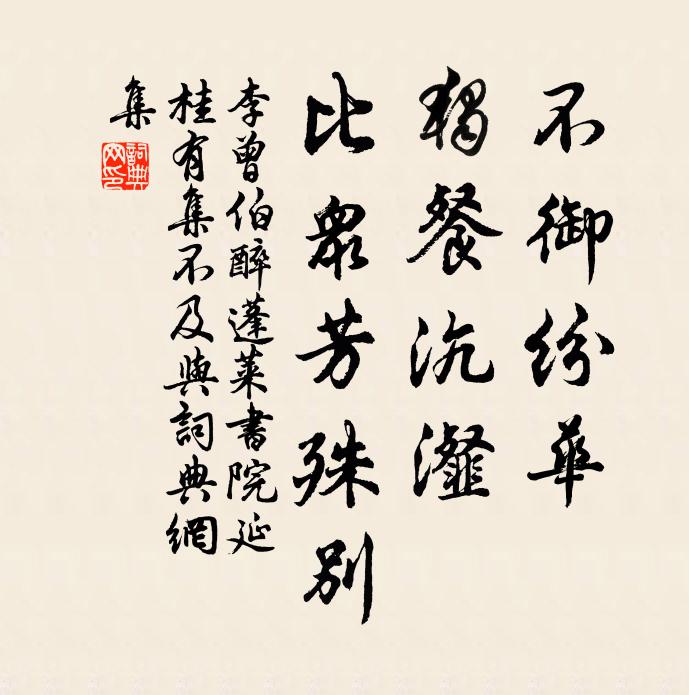 不御纷華
独餐沆瀣
比眾芳殊别
李曾伯醉蓬莱書院延
桂有集不及與詞典網
集
詞典網印